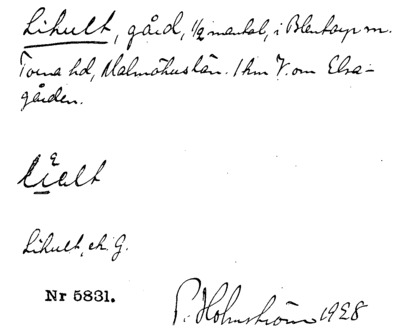 Likult, gård, 1/2 mantal, i Blentarp sn.
Torna hd, Malmöhus län. 1 km V. om Elsa-
gården.
Likult, ek. G.
Nr 5831.
P. Holmström 1928